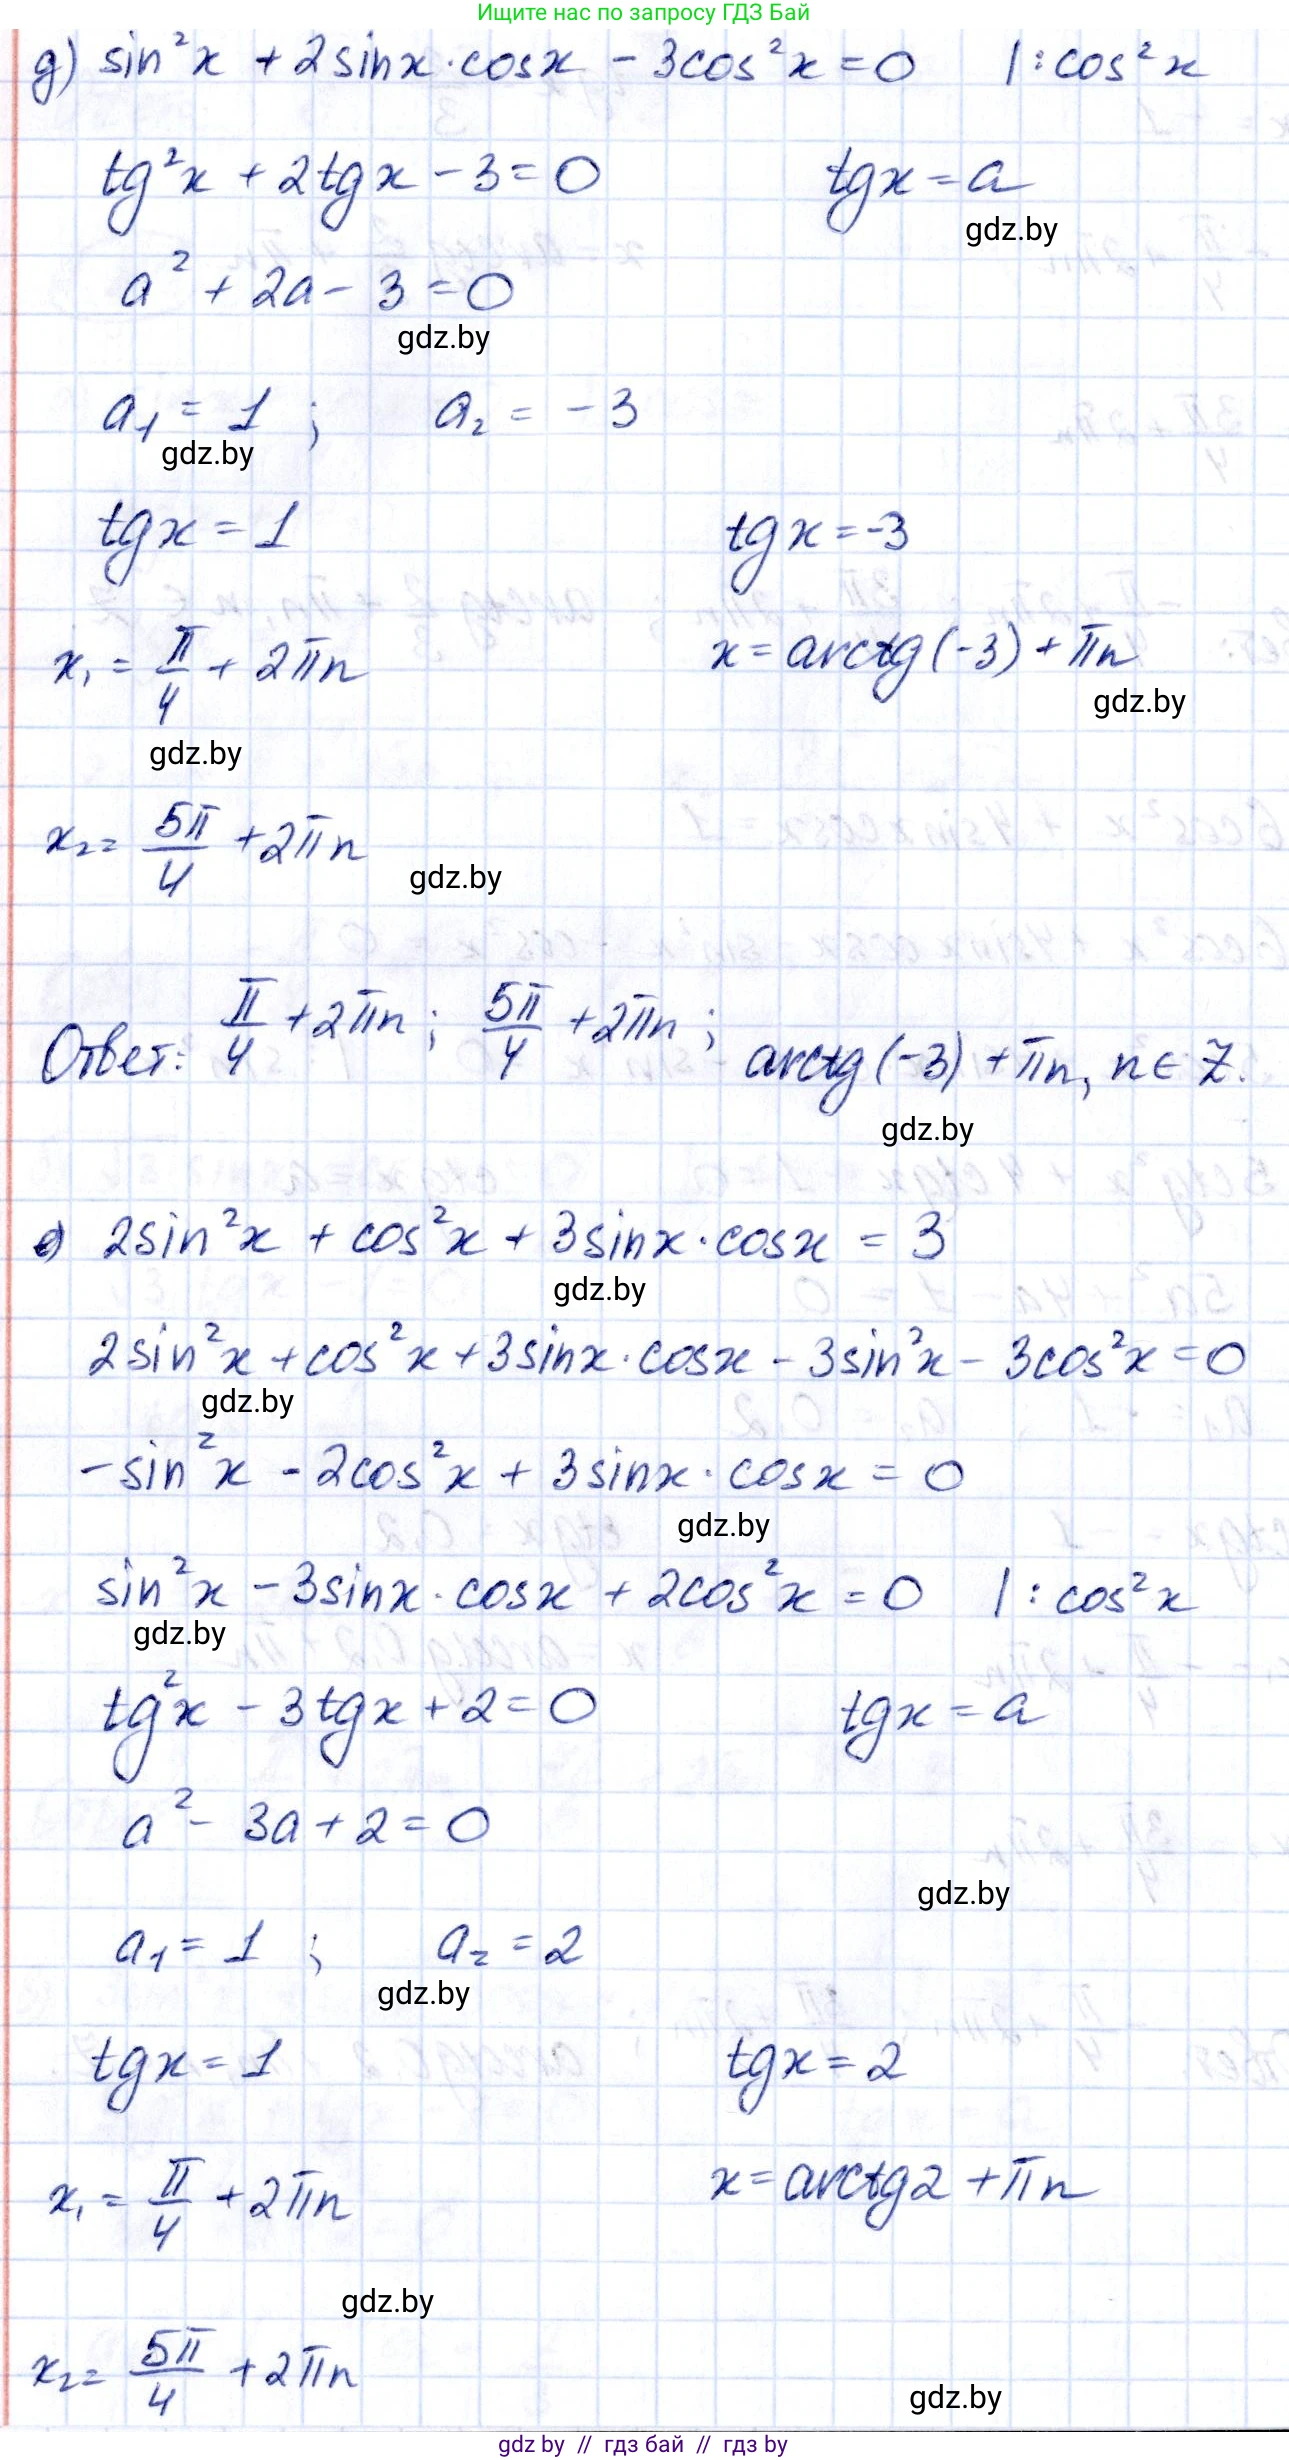 Ищите нас по запросу ГДЗ Бай
д) sin²x + 2sinx·cosx - 3cos²x = 0 |:cos²x
tg²x + 2tgx - 3 = 0 tgx = a
gdz.by
a² + 2a - 3 = 0
gdz.by
a₁ = 1 ; a₂ = -3
gdz.by
tgx = 1 tgx = -3
x₁ = π/4 + 2πn x = arctg(-3) + πn
gdz.by
gdz.by
x₂ = 5π/4 + 2πn
gdz.by
Ответ: π/4 + 2πn ; 5π/4 + 2πn ; arctg(-3) + πn, n ∈ Z.
gdz.by
е) 2sin²x + cos²x + 3sinx·cosx = 3
gdz.by
2sin²x + cos²x + 3sinx·cosx - 3sin²x - 3cos²x = 0
gdz.by
-sin²x - 2cos²x + 3sinx·cosx = 0
gdz.by
sin²x - 3sinx·cosx + 2cos²x = 0 |:cos²x
gdz.by
tg²x - 3tgx + 2 = 0 tgx = a
a² - 3a + 2 = 0
gdz.by
a₁ = 1 ; a₂ = 2
gdz.by
tgx = 1 tgx = 2
x₁ = π/4 + 2πn x = arctg2 + πn
gdz.by
x₂ = 5π/4 + 2πn
gdz.by
gdz by // гдз бай // гдз by